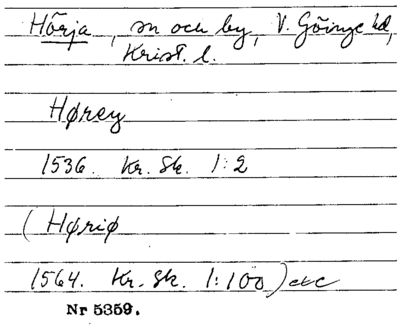 Hörja, sn och by, V. Göinge hd,
Krist. l.
Hørey
1536. Kr. Sk. 1:2
(Høriø
1564. Kr. Sk. 1:100) etc
Nr 5359.